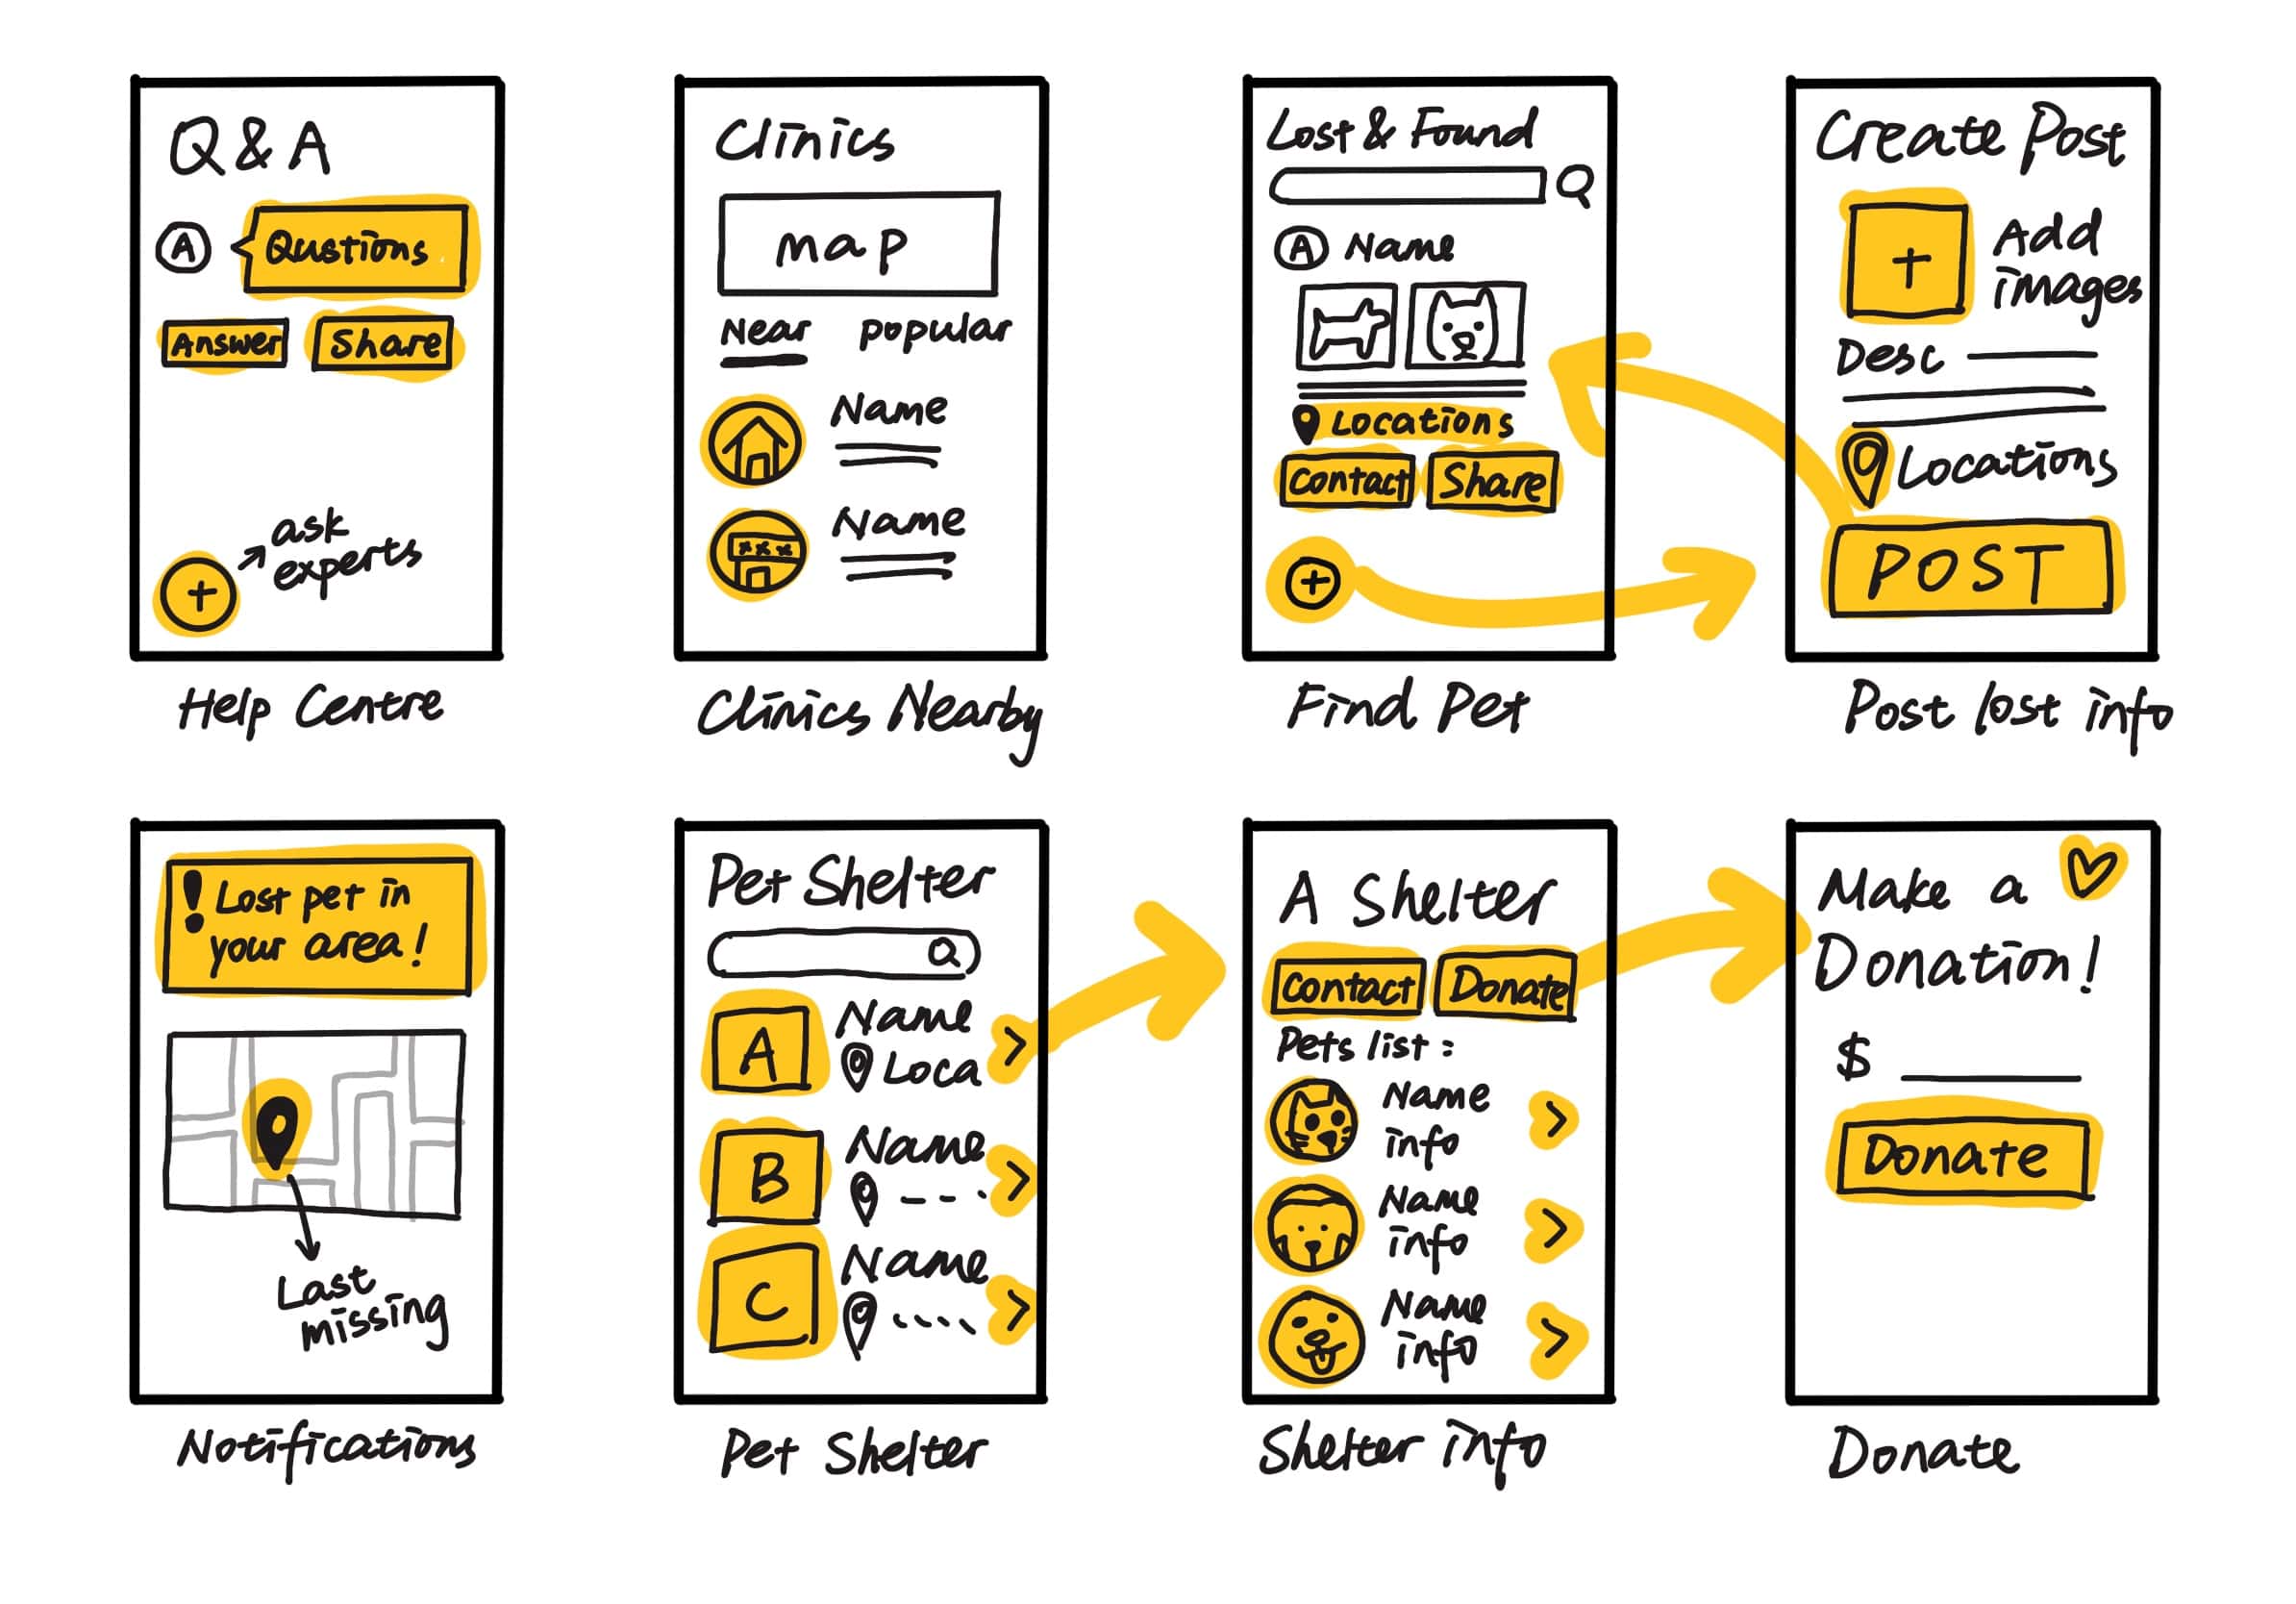 Q & A
A
Qustions
Answer
Share
+
ask
experts
Help Centre
Clinics
map
Near popular
Name
Name
Clinics Nearby
Lost & Found
A Name
Locations
Contact
Share
+
Find Pet
Create Post
+
Add
images
Desc
Locations
POST
Post lost info
! Lost pet in
your area!
Last
missing
Notifications
Pet Shelter
A
Name
Loca
>
B
Name
>
C
Name
>
Pet Shelter
A Shelter
Contact
Donate
Pets list:
Name
info
>
Name
info
>
Name
info
>
Shelter info
Make a
Donation!
$
Donate
Donate